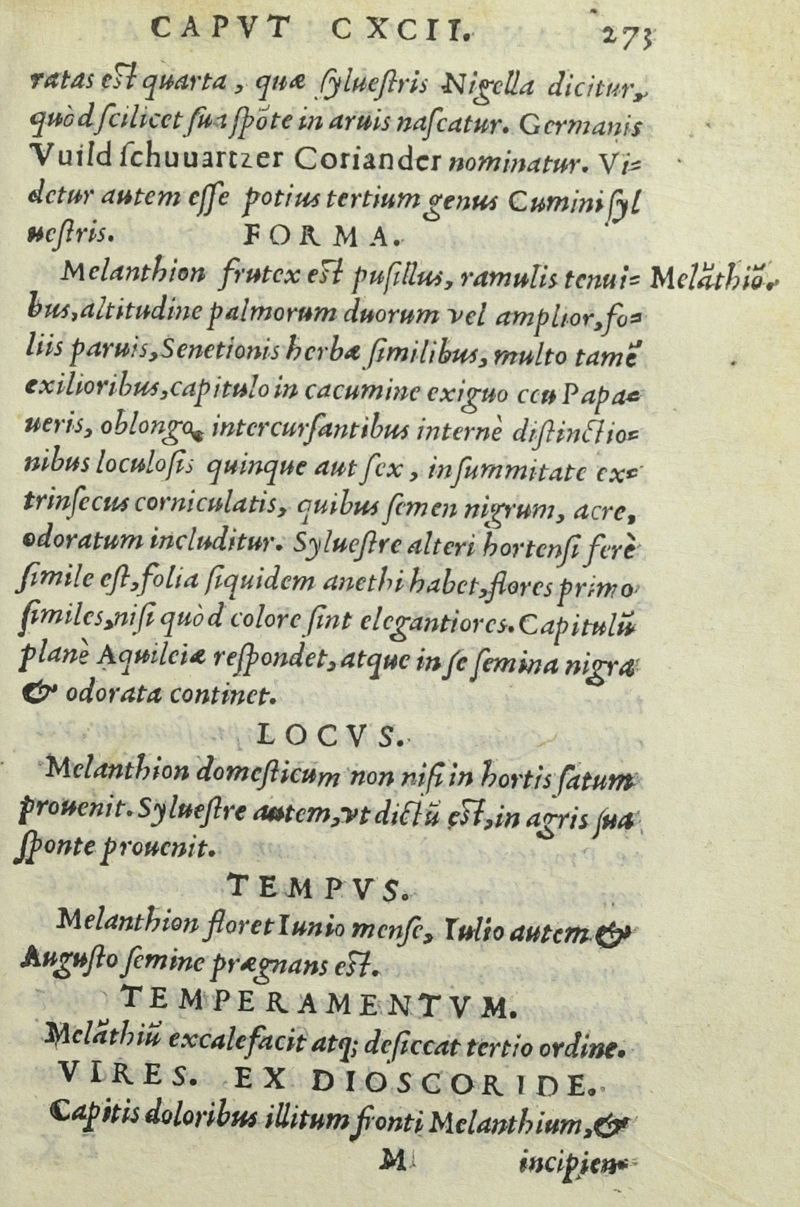 CAPVT CXCII. 273
ratas est quarta, quæ ſylueſtris Nigella dicitur,
quòd ſcilicet ſua ſpõte in aruis naſcatur. Germanis
Vuild ſchuuartzer Coriander nominatur. Vi=
detur autem eſſe potius tertium genus Cumini ſyl
ueſtris. FORMA.
Melanthion frutex est puſillus, ramulis tenui= Melãthiõ.
bus, altitudine palmorum duorum vel amplior, fo=
liis paruis, Senetionis herbæ ſimilibus, multo tamẽ
exilioribus, capitulo in cacumine exiguo ceu Papa=
ueris, oblongoq; intercurſantibus internè diſtinctio=
nibus loculoſis quinque aut ſex, in ſummitate ex=
trinſecus corniculatis, quibus ſemen nigrum, acre,
odoratum includitur. Sylueſtre alteri hortenſi ferè
ſimile eſt, folia ſiquidem anethi habet, flores primo
ſimiles, niſi quòd colore ſint elegantiores. Capitulũ
planè Aquileiæ reſpondet, atque in ſe ſemina nigra
& odorata continet.
LOCVS.
Melanthion domeſticum non niſi in hortis ſatum
prouenit. Sylueſtre autem, vt dictũ est, in agris ſua
ſponte prouenit.
TEMPVS.
Melanthion floret Iunio menſe, Iulio autem &
Auguſto ſemine prægnans est.
TEMPERAMENTVM.
Melãthiũ excalefacit atq; deſiccat tertio ordine.
VIRES. EX DIOSCORIDE.
Capitis doloribus illitum fronti Melanthium, &
M incipien=